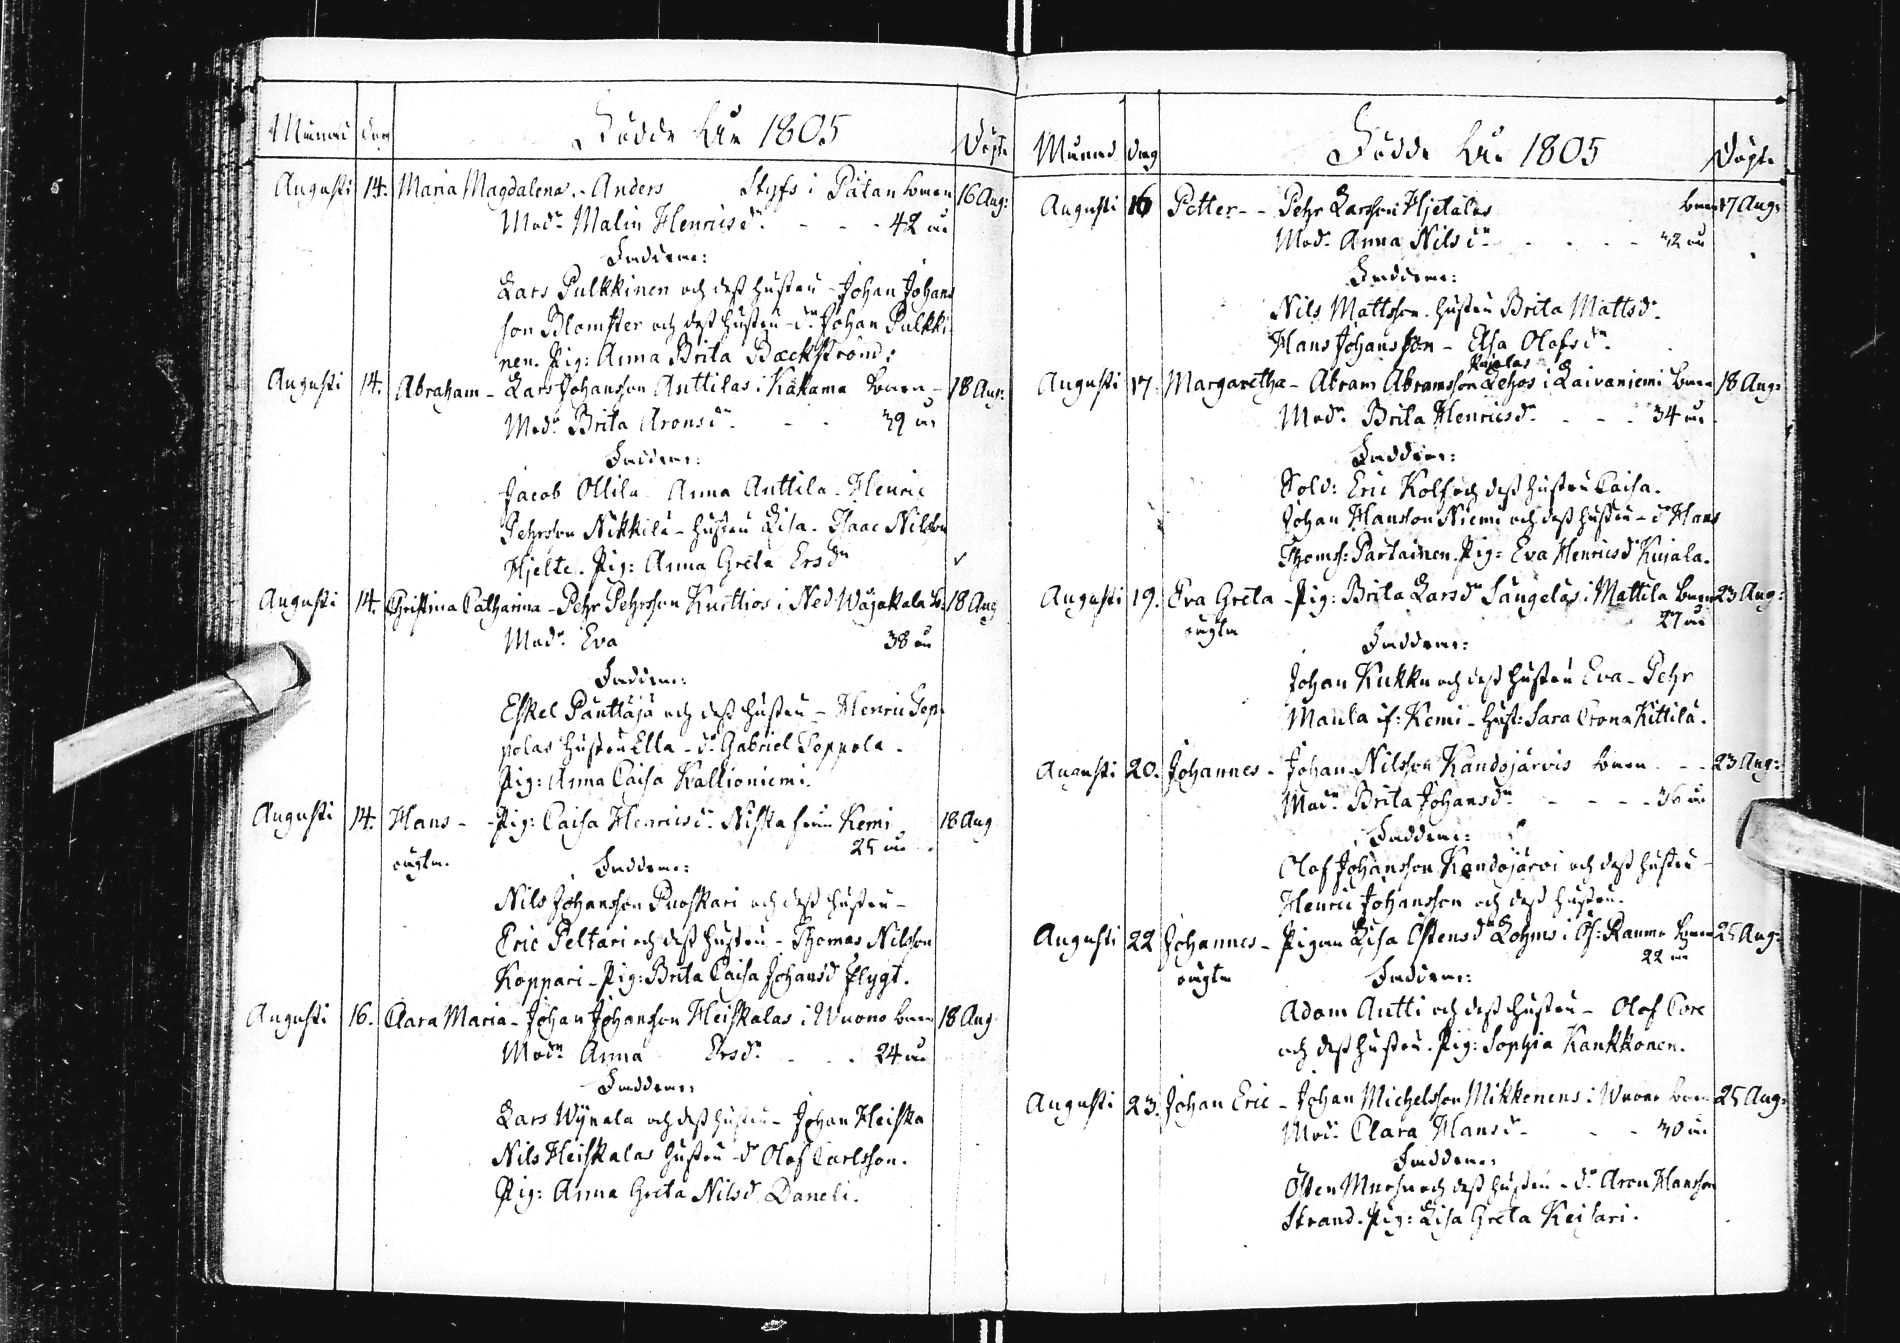 Månad dag Födde År 1805 Döpte
Augusti 14. Maria Magdalena - Anders Styfs i Pätan barn 16 Aug:
Modr Malin Henricsdr - - - 42 år
Faddrar:
Lars Pulkkinen och dess hustru - Johan Johans
son Blomster och dess hustru - dr Johan Pulkki
nen. Pig: Anna Brita Bäckström:
Augusti 14. Abraham - Lars Johansson Anttilas i Kakama barn - 18 Aug:
Modr Brita Aronsdr - - 39 år
Faddrar:
Jacob Ollila - Anna Anttila - Henric
Pehrsson Nikkilä - hustru Lisa - Isaac Nilsson
Hjelte. Pig: Anna Greta Ersdr
Augusti 14. Christina Catharina - Pehr Pehrsson Knuttios i Ned Wojakala b: 18 Aug
Modr Eva 38 år
Faddrar:
Eskel Panttaja och dess hustru - Henric Sop
polas hustru Ella - dr Gabriel Soppola.
Pig: Anna Caisa Kallioniemi.
Augusti 14. Hans - - Pig: Caisa Henricsdr Niska från Kemi 18 Aug
25 år
oägta. Faddrar:
Nils Johansson Puoskari och dess hustru -
Eric Peltari och dess hustru - Thomas Nilsson
Koppari - Pig: Brita Caisa Johansd Flygt.
Augusti 16. Clara Maria - Johan Johansson Heiskalas i Wuono barn 18 Aug
Modr Anna Ersdr - - 24 år
Faddrar:
Lars Wynala och dess hustru - Johan Heiska
Nils Heiskalas hustru - dr Olof Carlsson.
Pig: Anna Greta Nilsd Daneli.
Månad dag Födde År 1805 Döpte
Augusti 16 Petter - - Pehr Larsson Hjetalas barn 17 Aug:
Modr Anna Nilsdr - - - - 32 år
Faddrar:
Nils Mattsson - hustru Brita Mattsdr
Hans Johansson - Elsa Olofsdr
Kujalas
Augusti 17. Margaretha - Abram Abramsson Lehos i Laivaniemi barn 18 Aug:
Modr Brita Henricsdr - - - 34 år
Faddrar:
Sold: Eric Kolf och dess hustru Caisa.
Johan Hansson Niemi och dess hustru - dr Hans
Thomss: Partainen. Pig: Eva Henricsd Kujala.
Augusti 19. Eva Greta - Pig: Brita Larsdr Sangelas i Mattila barn 23 Aug:
27 år
oägta Faddrar:
Johan Kukku och dess hustru Eva - Pehr
Maula if: Kemi - hust: Sara Crona Kittilä.
Augusti 20. Johannes - Johan Nilsson Kandojärvis barn - - 23 Aug:
Modr Brita Johansdr - - - - 36 år
Faddrar:
Olof Johansson Kandojärvi och dess hustru -
Henric Johansson och dess hustru.
Augusti 22 Johannes - Pigan Lisa Östensdr Lohms i Öf: Raumo barn 25 Aug:
22 år
oägta Faddrar:
Adam Autti och dess hustru - Olof Core
och dess hustru. Pig: Sophia Kankkonen.
Augusti 23. Johan Eric - Johan Michelsson Mikkenens i Wuono barn 25 Aug:
Modr Clara Hansdr - - - 30 år
Faddrar:
Östen och dess hustru - dr Aron Hansson
Strand. Pig: Lisa Greta Keisari.